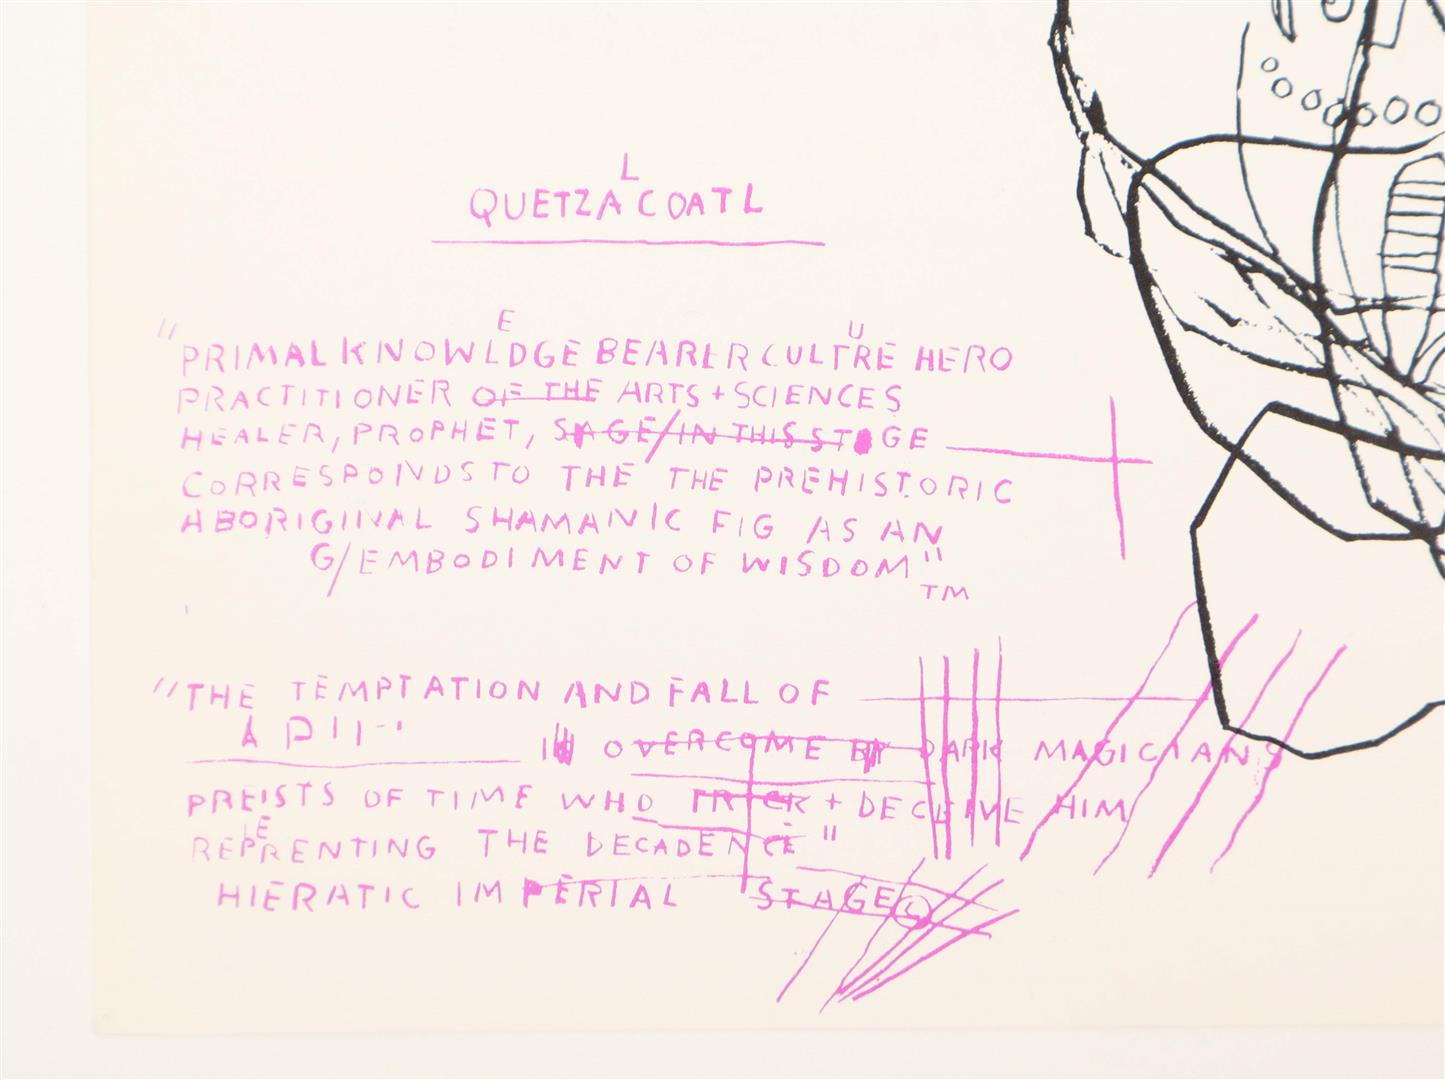 QUETZALCOATL
"PRIMAL KNOWLEDGE BEARER CULTURE HERO
PRACTITIONER OF THE ARTS + SCIENCES
HEALER, PROPHET, SAGE/IN THIS STAGE
CORRESPONDS TO THE THE PREHISTORIC
ABORIGINAL SHAMANIC FIG AS AN
G/EMBODIMENT OF WISDOM"
TM
"THE TEMPTATION AND FALL OF
OVERCOME BY DARK MAGICIANS
PREISTS OF TIME WHO TRICK + DECEIVE HIM
REPRENTING THE DECADENCE"
HIERATIC IMPERIAL STAGE©